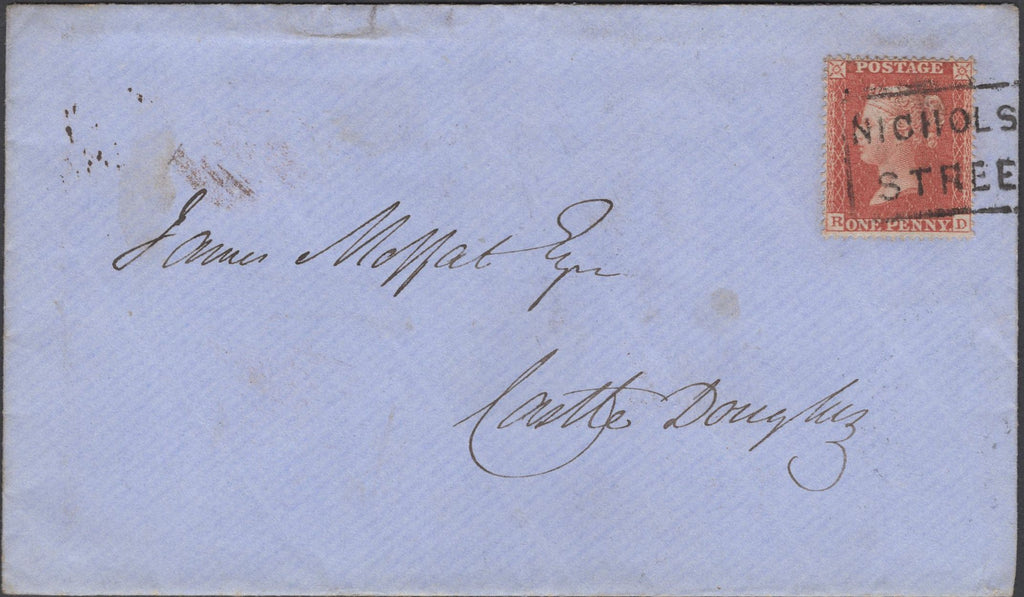 POSTAGE
NICHOLS
STREE
R ONE PENNY. D
James Moffat Esqr
Castle Douglas